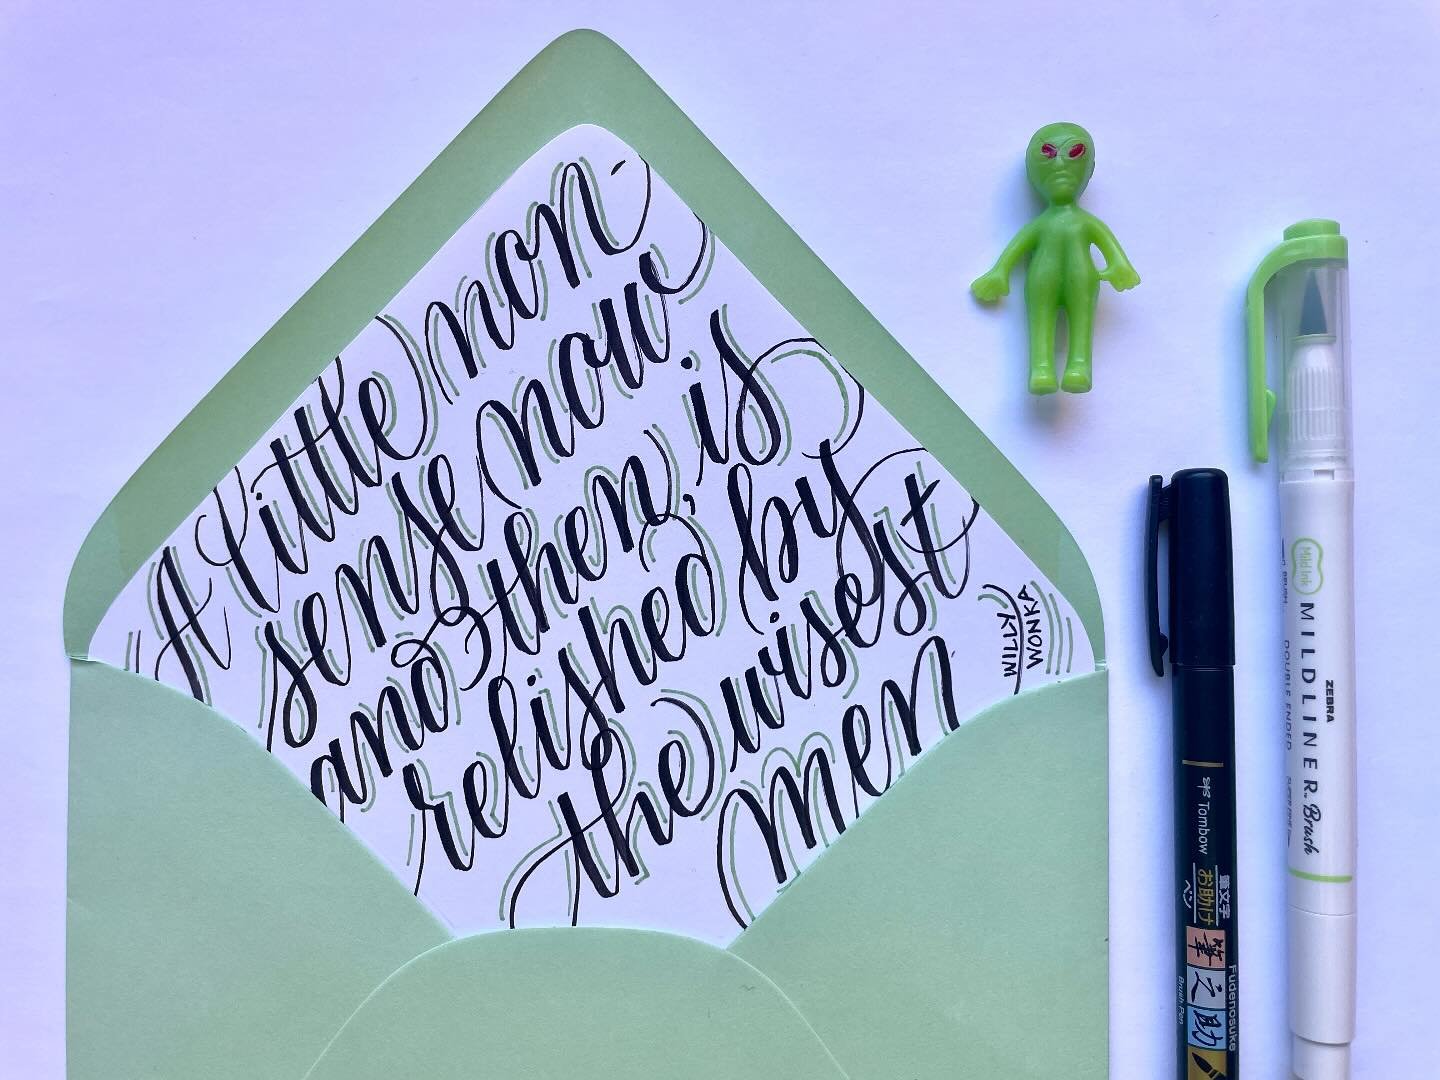 A little non-
sense now
and then, is
relished by
the wisest
men
WILLY
WONKA
Mild Ink
MILDLINER Brush
ZEBRA
DOUBLE ENDED
Tombow
筆文字
お助け
ペン
筆之助
Fudenosuke
Brush Pen